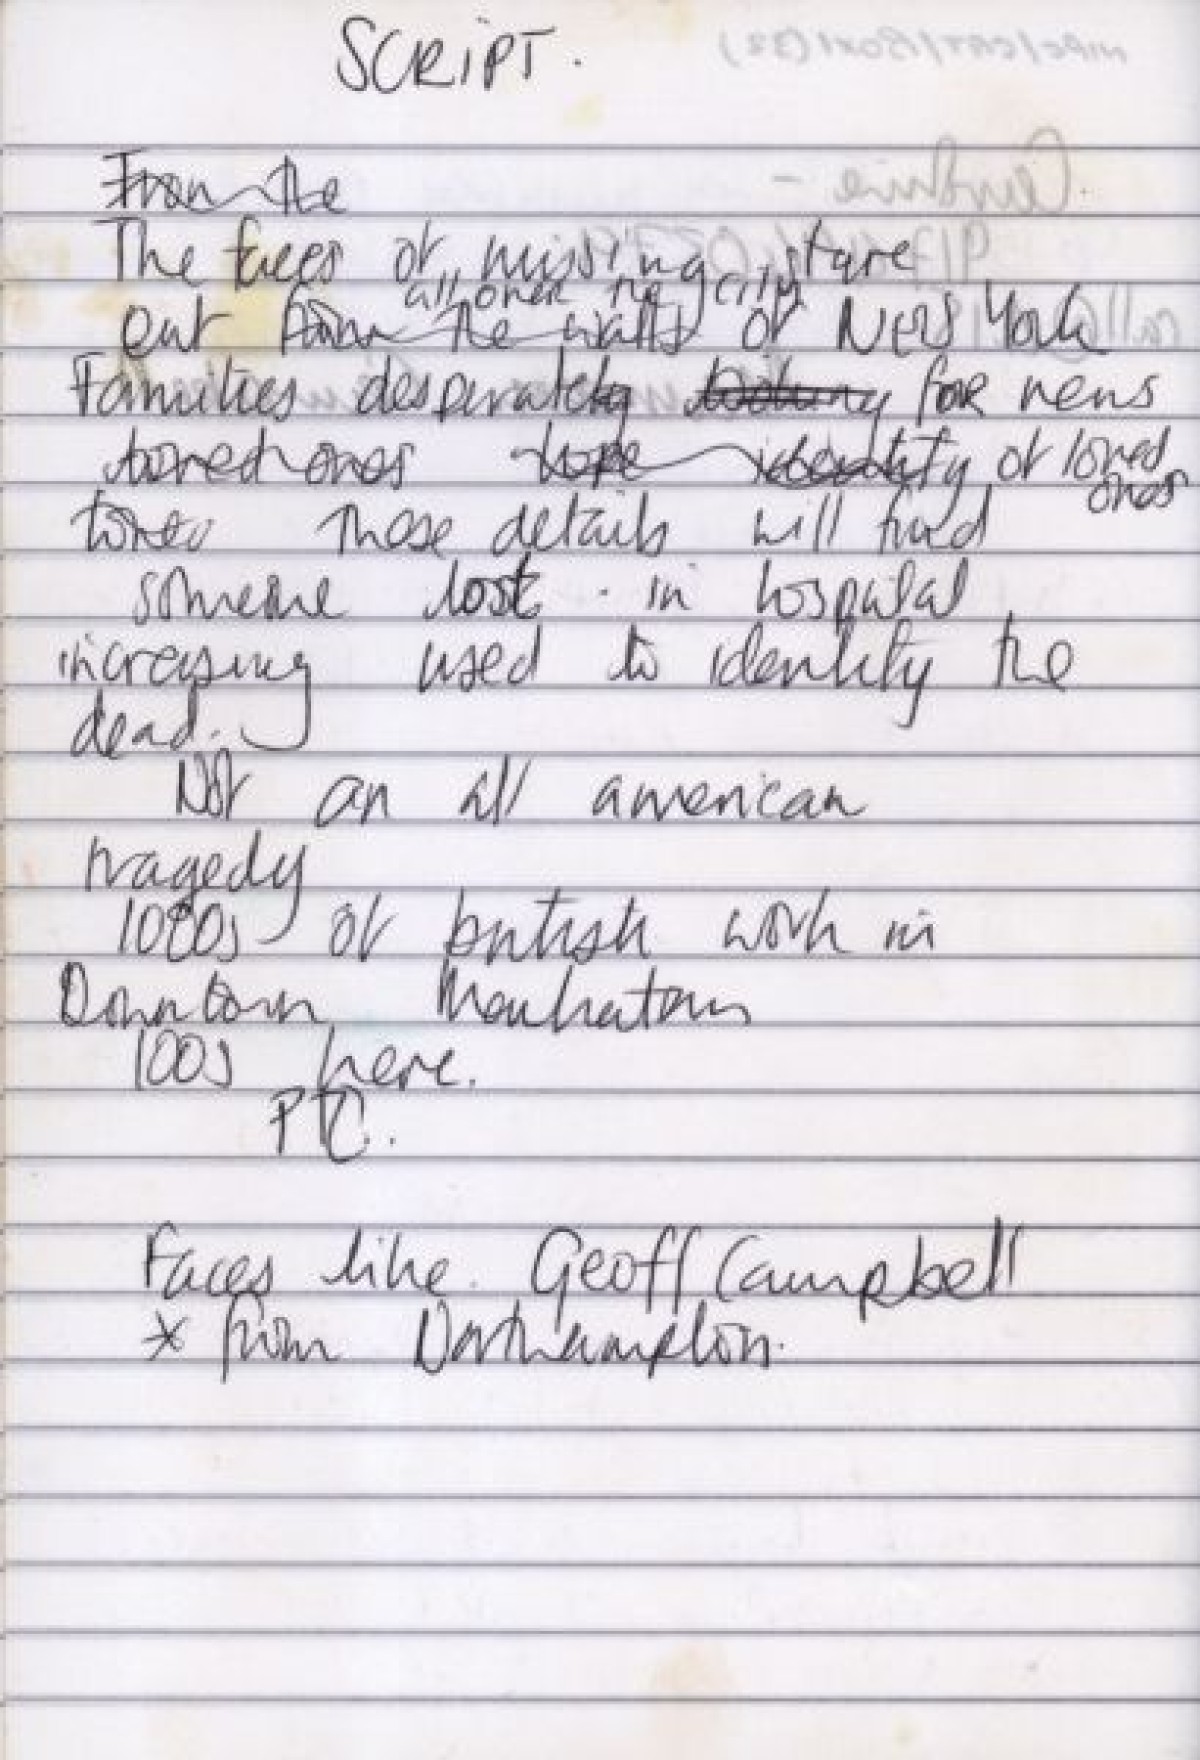 SCRIPT.
From the
The faces of missing stare
all over the city
out from the walls of New York
Families desperately looking for news
loved ones hope identity of loved
ones
These details will find
someone lost . in hospital
increasing used to identity the
dead.
Not an all american
tragedy
1000s of british work in
Downtown Manhatan
100s here.
PTC.
Faces like. Geoff Campbell
* from Northampton.